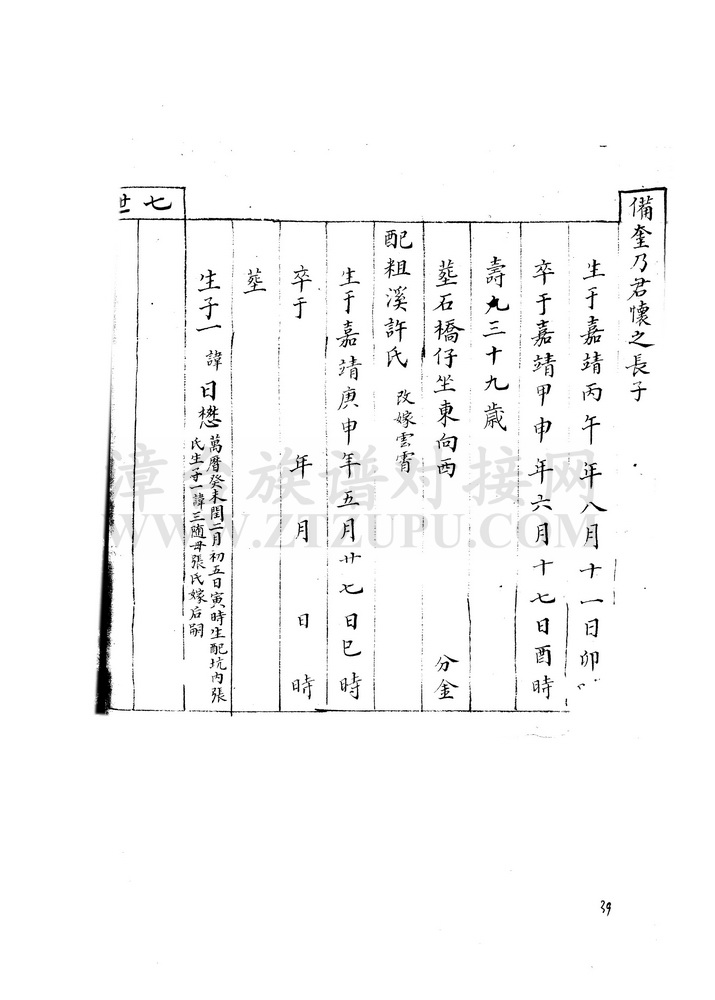 備奎乃君懷之長子
生于嘉靖丙午年八月十一日卯
卒于嘉靖甲申年六月十七日酉時
壽三十九歲
塟石橋仔坐東向西 分金
配粗溪許氏 改嫁雲霄
生于嘉靖庚申年五月廿七日巳時
卒于 年 月 日 時
塟
生子一 諱日懋 萬曆癸未閏二月初五日寅時生配坑內張
氏生子一諱三随母張氏嫁后嗣
七世
漳台族谱对接网
WWW.ZTZUPU.COM
39